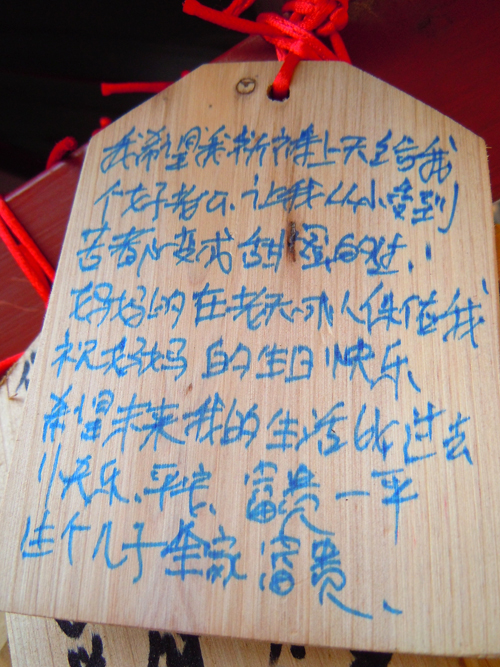 我希望我祈求上天给我
个好老公、让我从小受到
苦都变成甜蜜的过
妈妈的在老天 保佑我
祝妈妈的生日快乐
希望未来我的生活比过去
快乐、平安、富贵一平
这个儿子全家富贵、